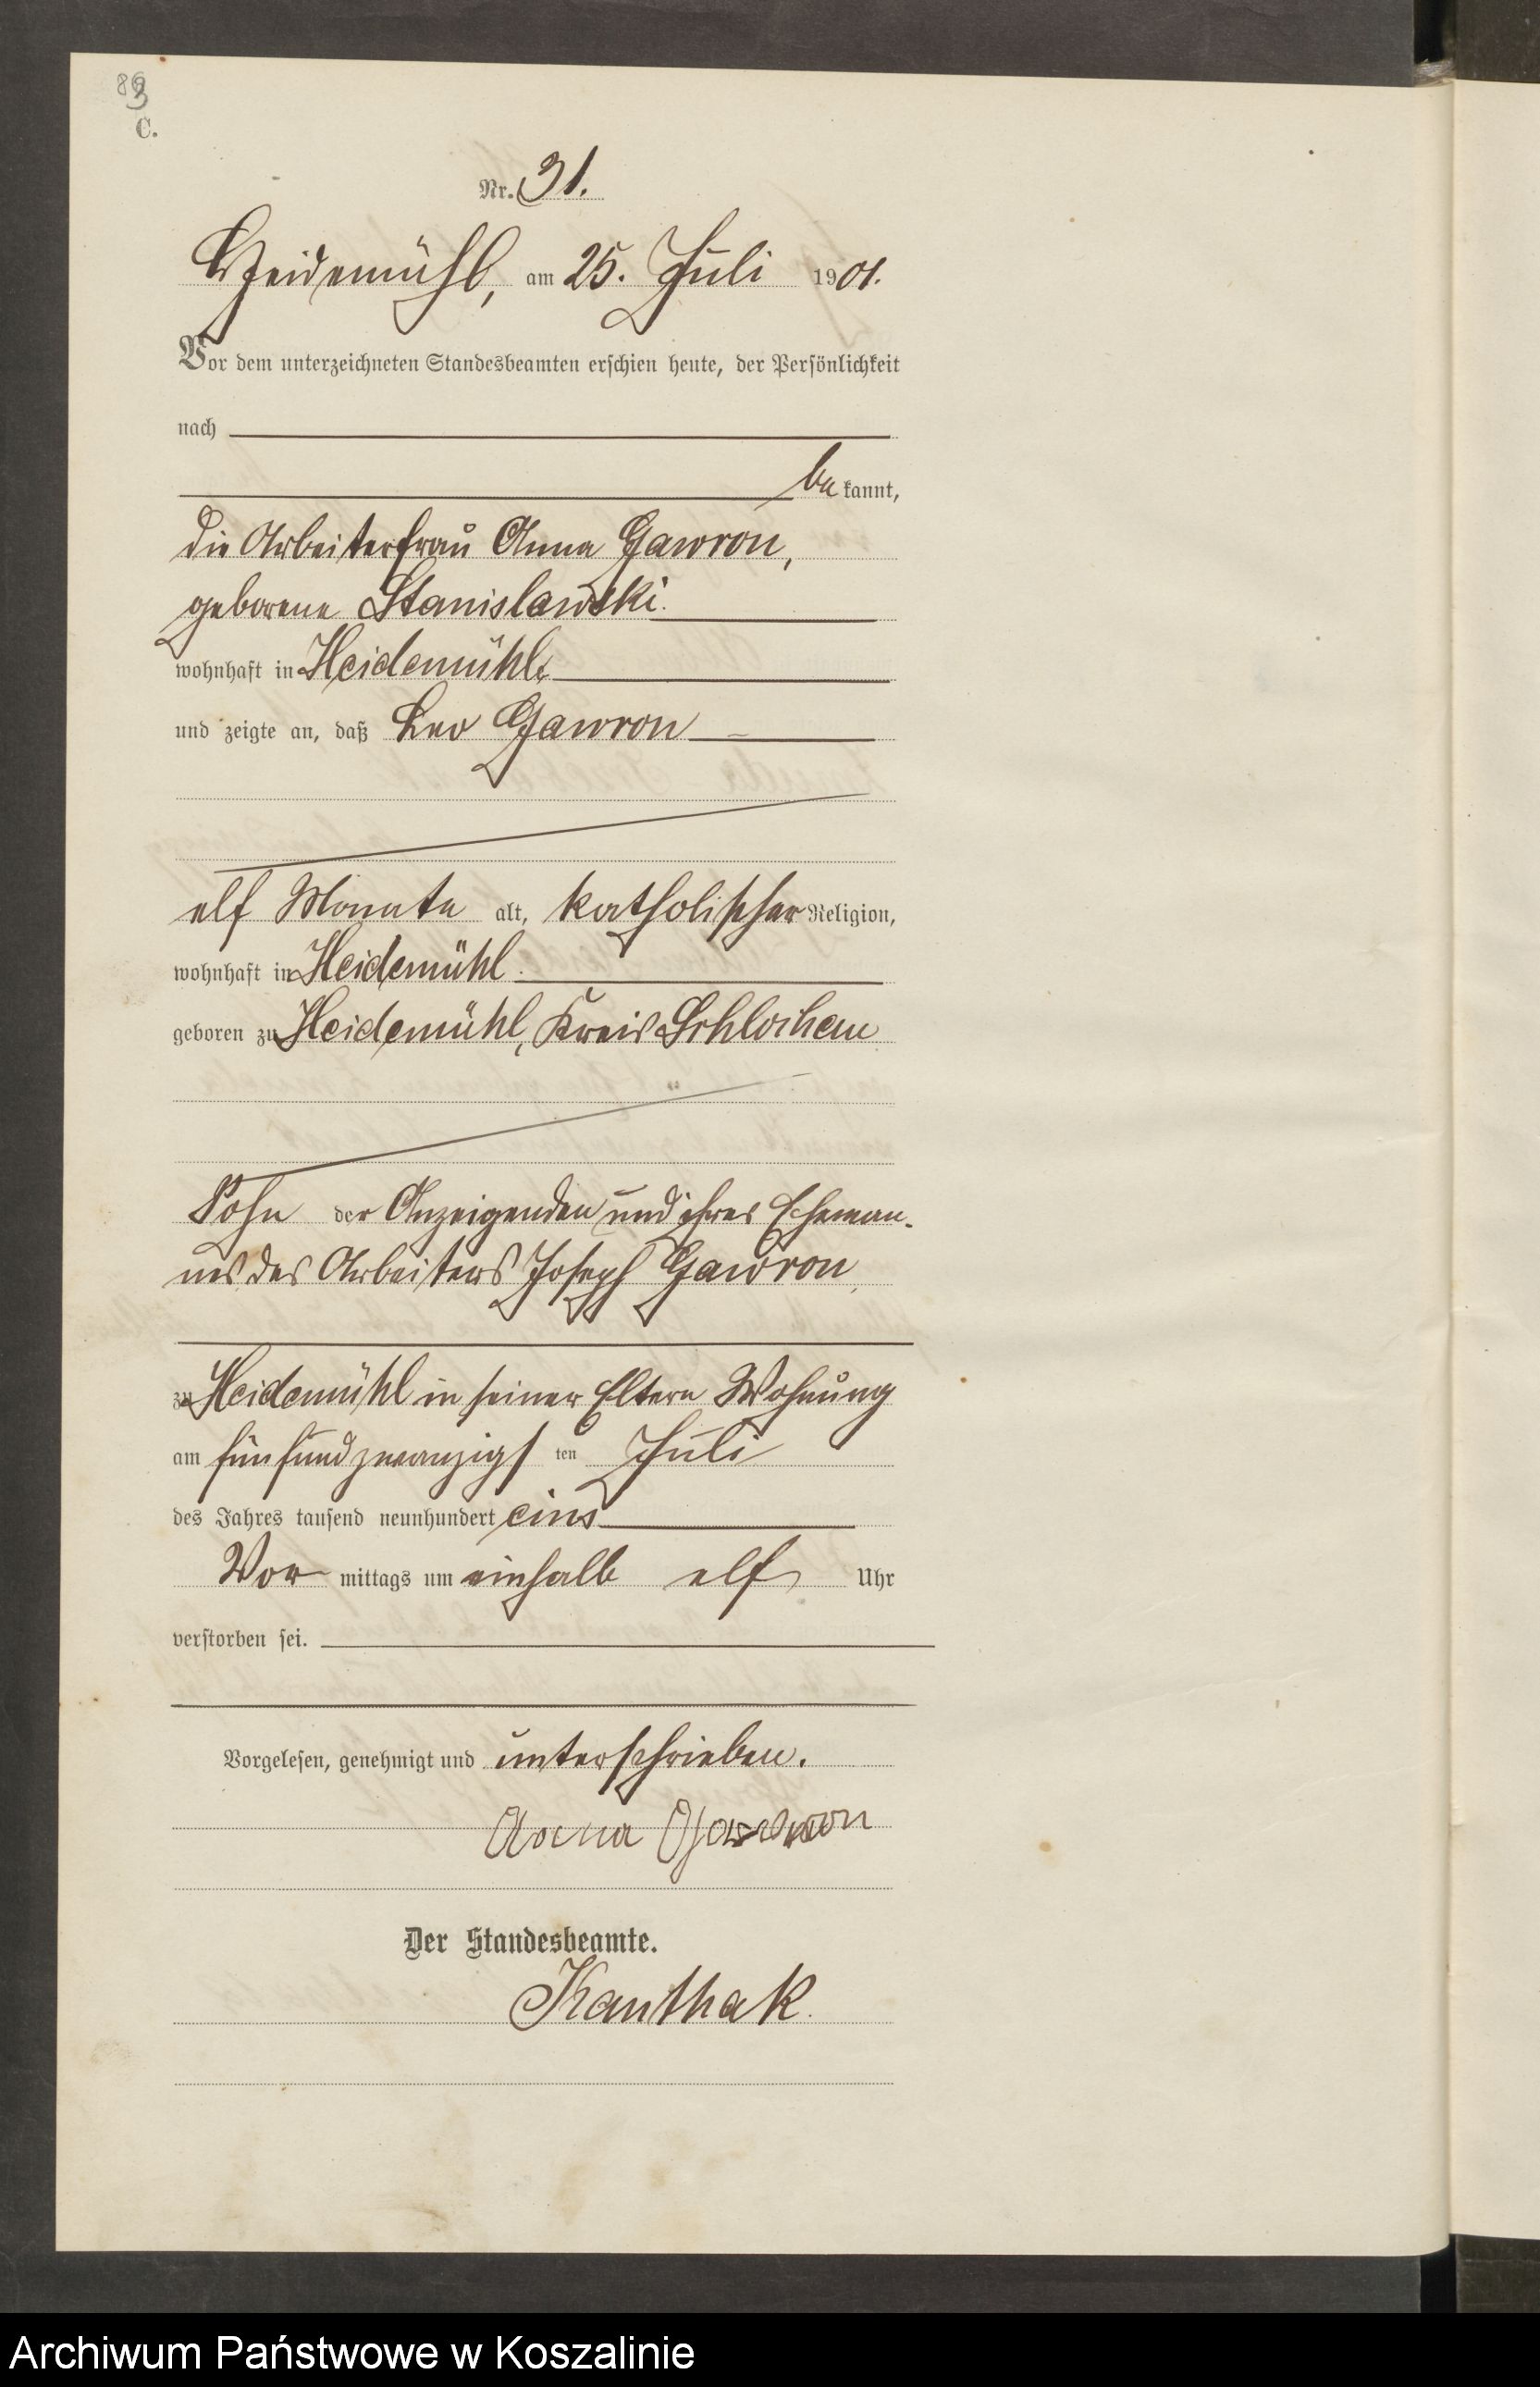 C.
Nr. 31.
Heidemühl, am 25. Juli 1901.
Vor dem unterzeichneten Standesbeamten erschien heute, der Persönlichkeit
nach
bekannt,
die Arbeiterfrau Anna Gawron,
geborene Stanislawski
wohnhaft in Heidemühl
und zeigte an, daß Leo Gawron
elf Monate alt, katholischer Religion,
wohnhaft in Heidemühl
geboren zu Heidemühl, Kreis Schlochau
Sohn der Anzeigenden und ihres Eheman-
nes des Arbeiters Joseph Gawron
zu Heidemühl in seiner Eltern Wohnung
am fünfundzwanzigsten Juli
des Jahres tausend neunhundert eins
Vormittags um einhalb elf Uhr
verstorben sei.
Vorgelesen, genehmigt und unterschrieben.
Anna Gawron
Der Standesbeamte.
Kanthak.
Archiwum Państwowe w Koszalinie